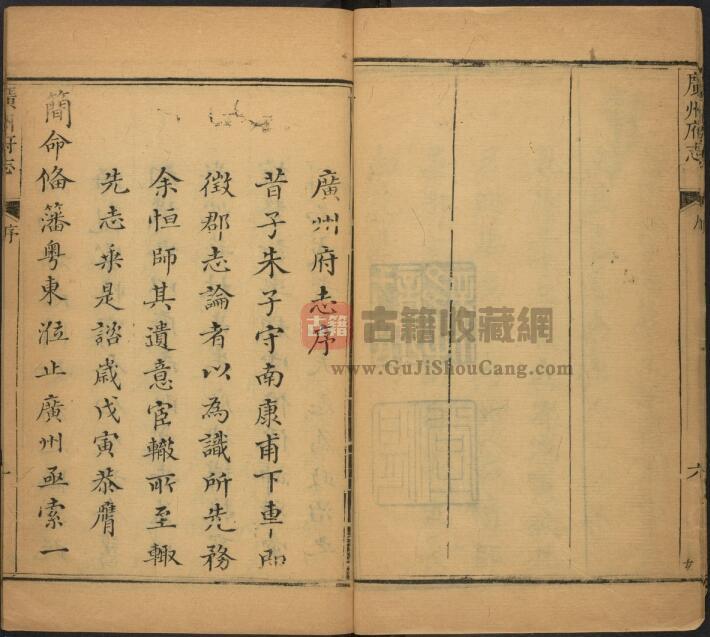 廣州府志
六
廣州府志序
昔子朱子守南康甫下車即
徵郡志論者以為識所先務
余恒師其遺意宦轍所至輒
先志乘是諮歲戊寅恭膺
簡命偹藩粵東涖止廣州亟索一
廣州府志
序
古籍
古籍收藏網
www.GuJiShouCang.com